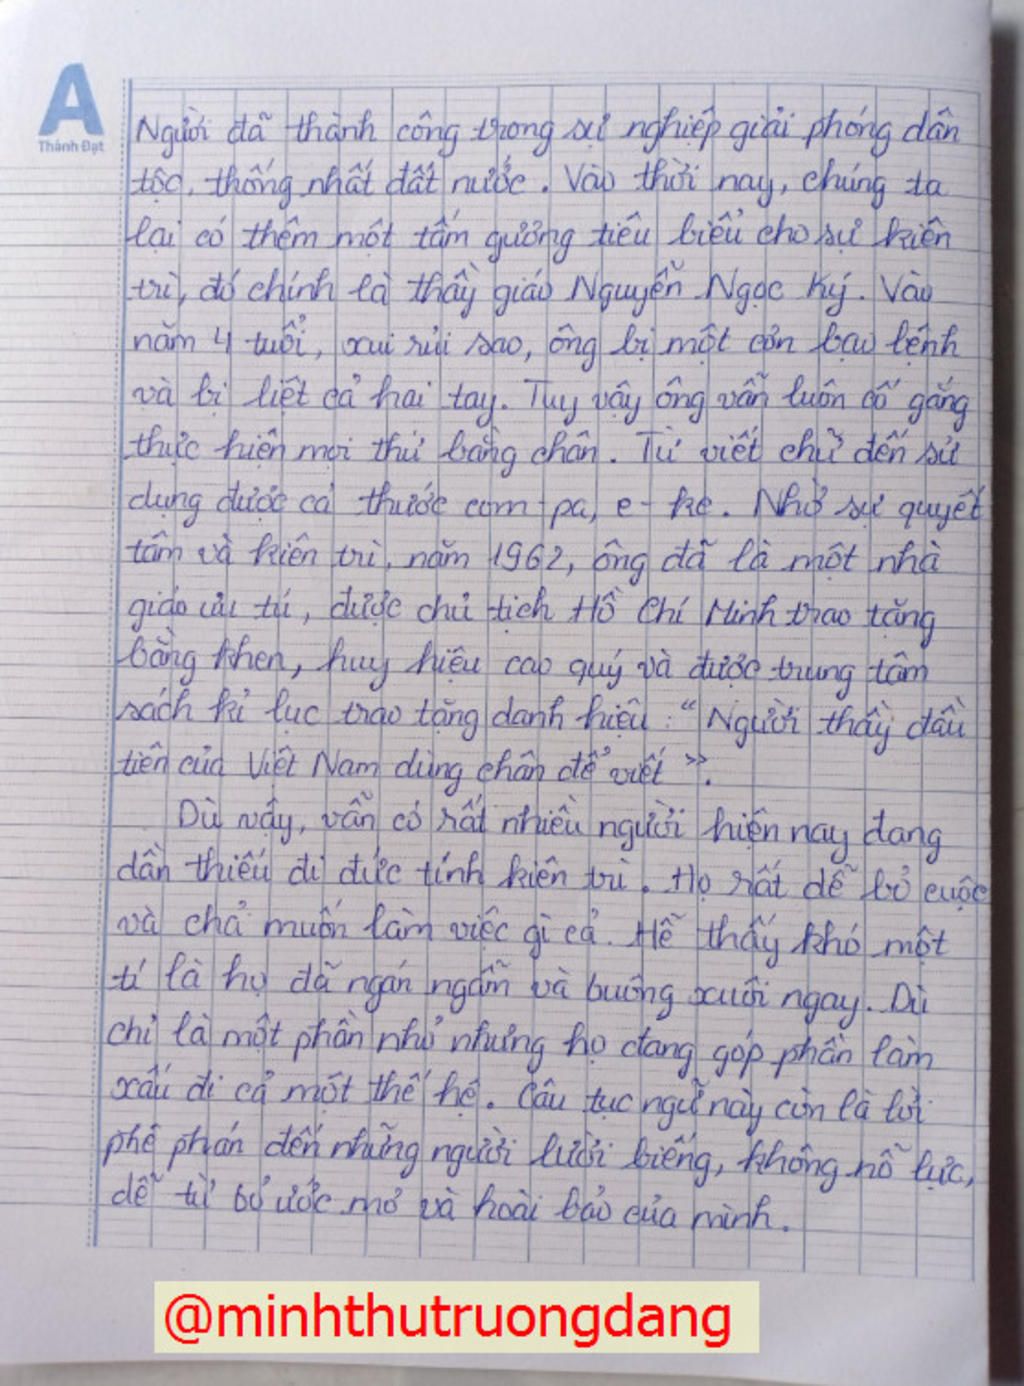 A
Thành Đạt
Người đã thành công trong sự nghiệp giải phóng dân
tộc, thống nhất đất nước. Vào thời nay, chúng ta
lại có thêm một tấm gương tiêu biểu cho sự kiên
trì, đó chính là thầy giáo Nguyễn Ngọc Ký. Vào
năm 4 tuổi, xui rủi sao, ông bị một cơn bạo bệnh
và bị liệt cả hai tay. Tuy vậy ông vẫn luôn cố gắng
thực hiện mọi thứ bằng chân. Từ viết chữ đến sử
dụng được cả thước com-pa, e-ke. Nhờ sự quyết
tâm và kiên trì, năm 1962, ông đã là một nhà
giáo ưu tú, được chủ tịch Hồ Chí Minh trao tặng
bằng khen, huy hiệu cao quý và được trung tâm
sách kỉ lục trao tặng danh hiệu: "Người thầy đầu
tiên của Việt Nam dùng chân để viết".
Dù vậy, vẫn có rất nhiều người hiện nay đang
dần thiếu đi đức tính kiên trì. Họ rất dễ bỏ cuộc
và chả muốn làm việc gì cả. Hễ thấy khó một
tí là họ đã ngán ngẫm và buông xuôi ngay. Dù
chỉ là một phần nhỏ nhưng họ đang góp phần làm
xấu đi cả một thế hệ. Câu tục ngữ này còn là lời
phê phán đến những người lười biếng, không nỗ lực,
dễ từ bỏ ước mơ và hoài bão của mình.
@minhthutruongdang